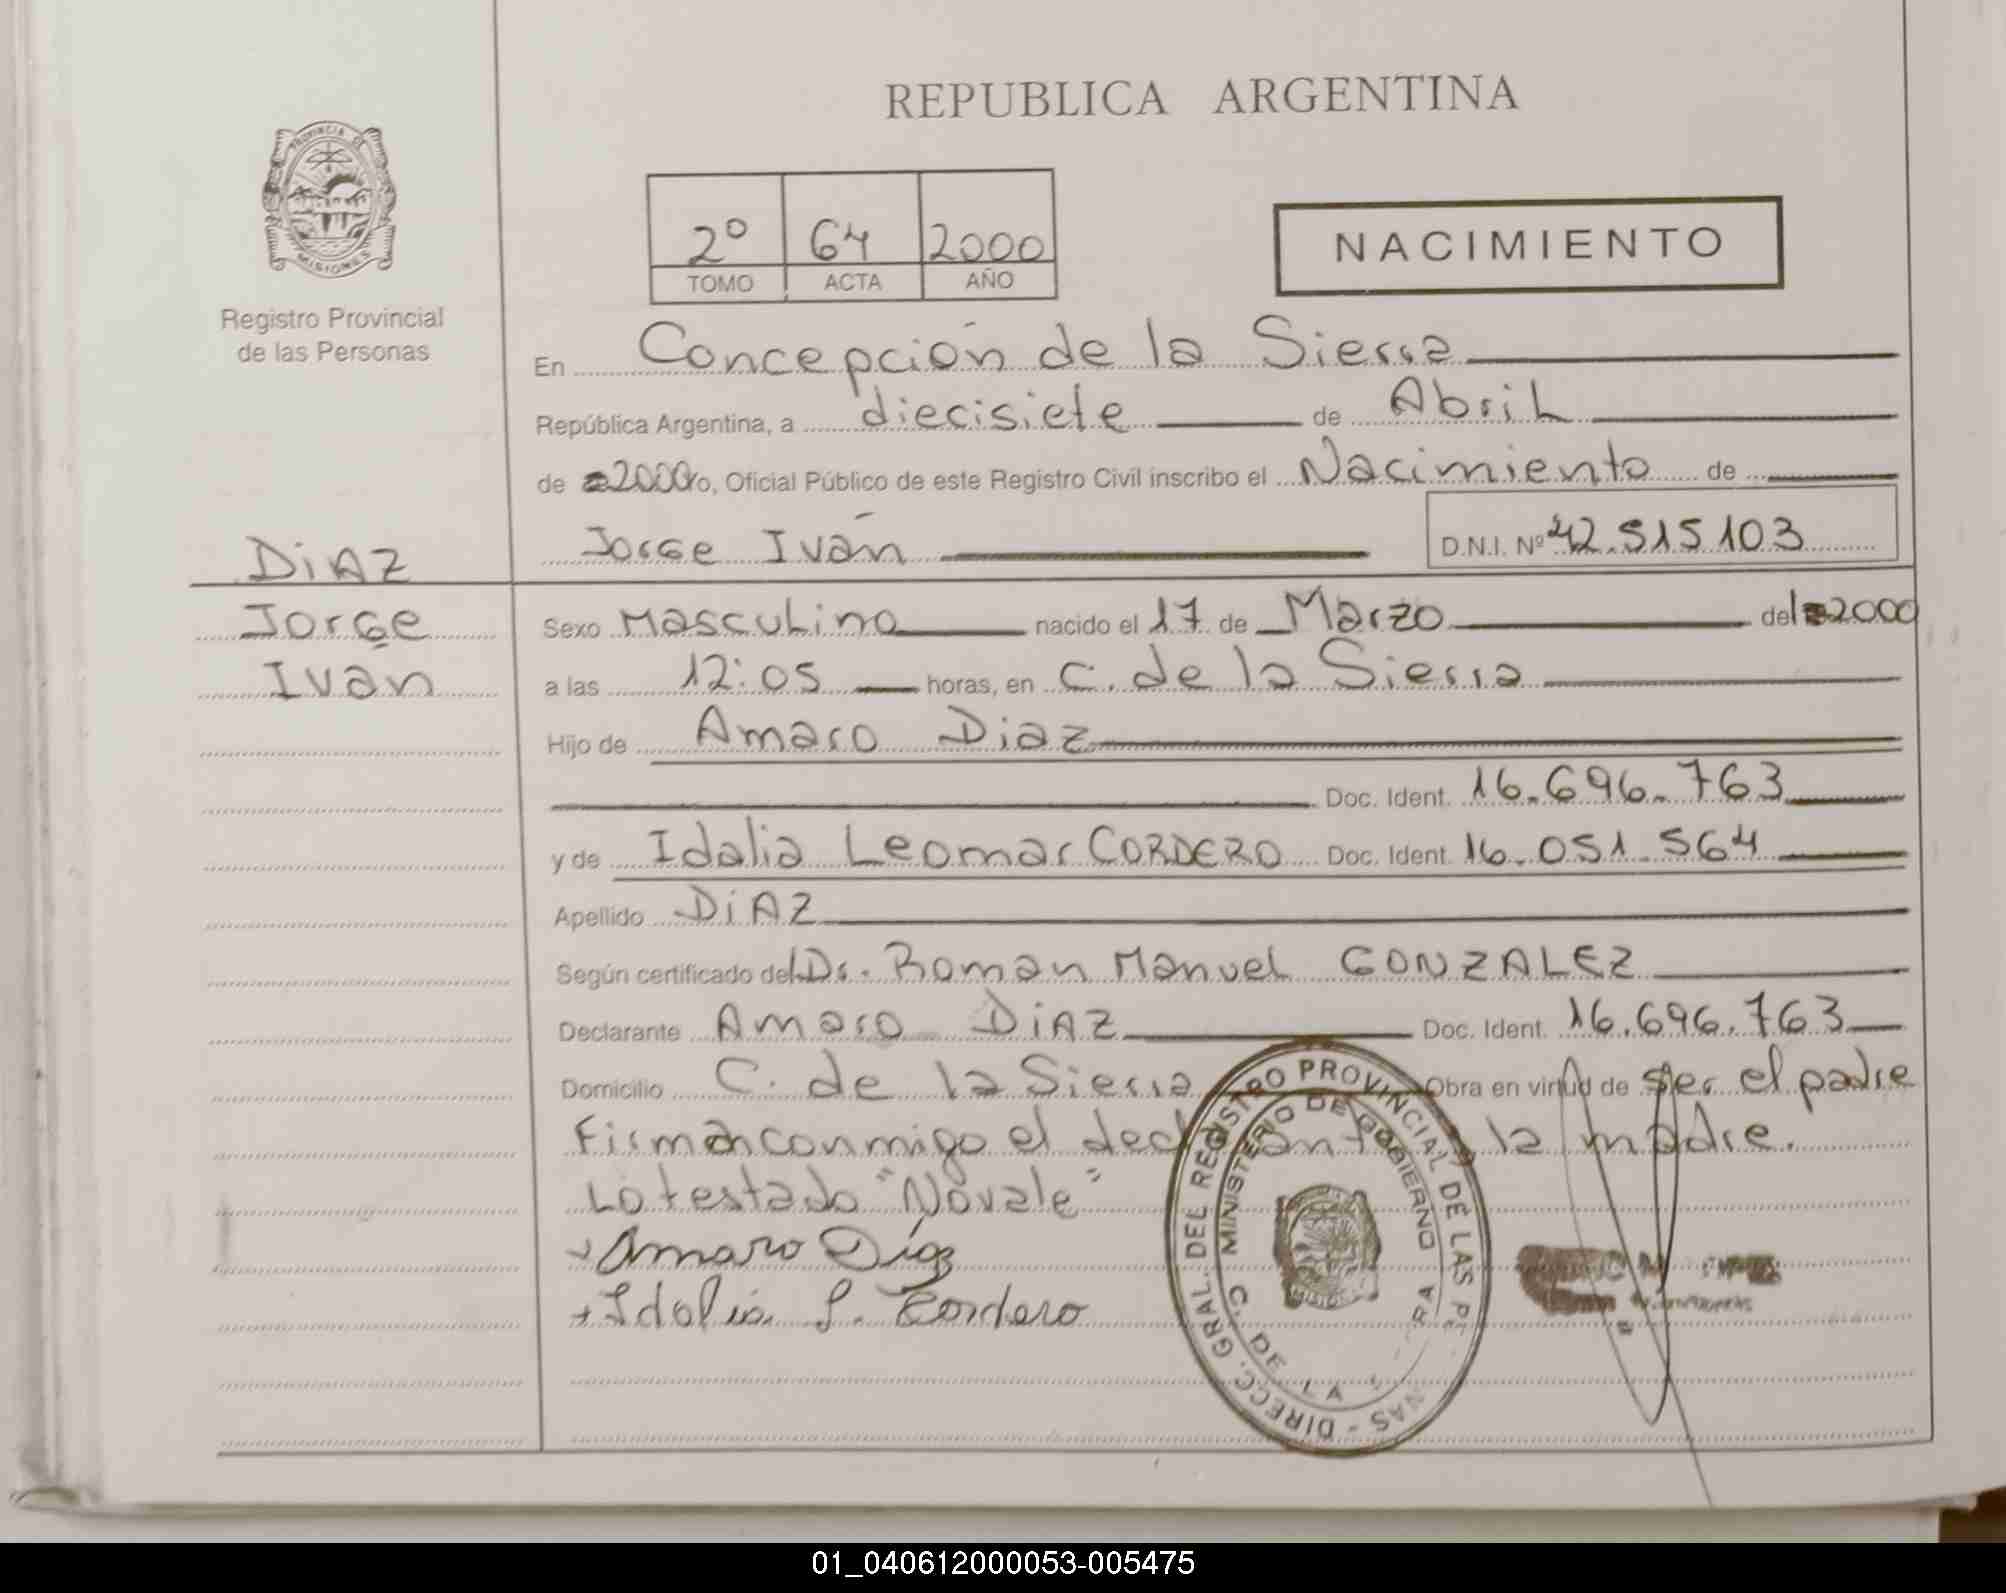 REPUBLICA ARGENTINA
PROVINCIA DE
MISIONES
Registro Provincial
de las Personas
2º 64 2000
TOMO ACTA AÑO
NACIMIENTO
En Concepción de la Sierra
República Argentina, a diecisiete de Abril
de 2000 yo, Oficial Público de este Registro Civil inscribo el Nacimiento de
Jorge Iván D.N.I. Nº 42.515.103
DiAZ
Jorge
Iván
Sexo Masculino nacido el 17 de Marzo del 2000
a las 12:05 horas, en C. de la Sierra
Hijo de Amaro Diaz
Doc. Ident. 16.696.763
y de Idalia Leomar CORDERO Doc. Ident. 16.051.564
Apellido DiAZ
Según certificado del Dr. Roman Manuel GONZALEZ
Declarante Amaro DiAZ Doc. Ident. 16.696.763
Domicilio C. de la Sierra Obra en virtud de ser el padre
Firman conmigo el declarante y la madre.
Lo testado "No vale"
Amaro Díaz
Idalia L. Cordero
DIRECC. GRAL. DEL REGISTRO PROVINCIAL DE LAS PE NAS
MINISTERIO DE GOBIERNO
C. DE LA RA
01_040612000053-005475